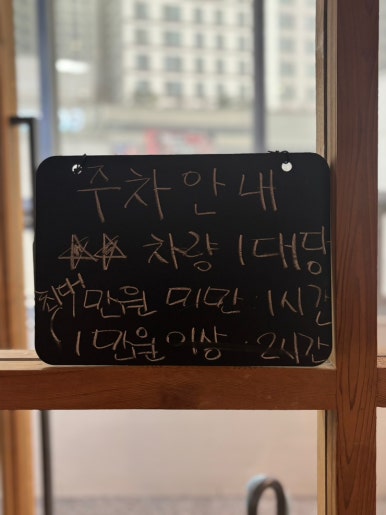 주차안내
☆☆ 차량 1대당
최대 1만원 미만 : 1시간
1만원 이상 : 2시간